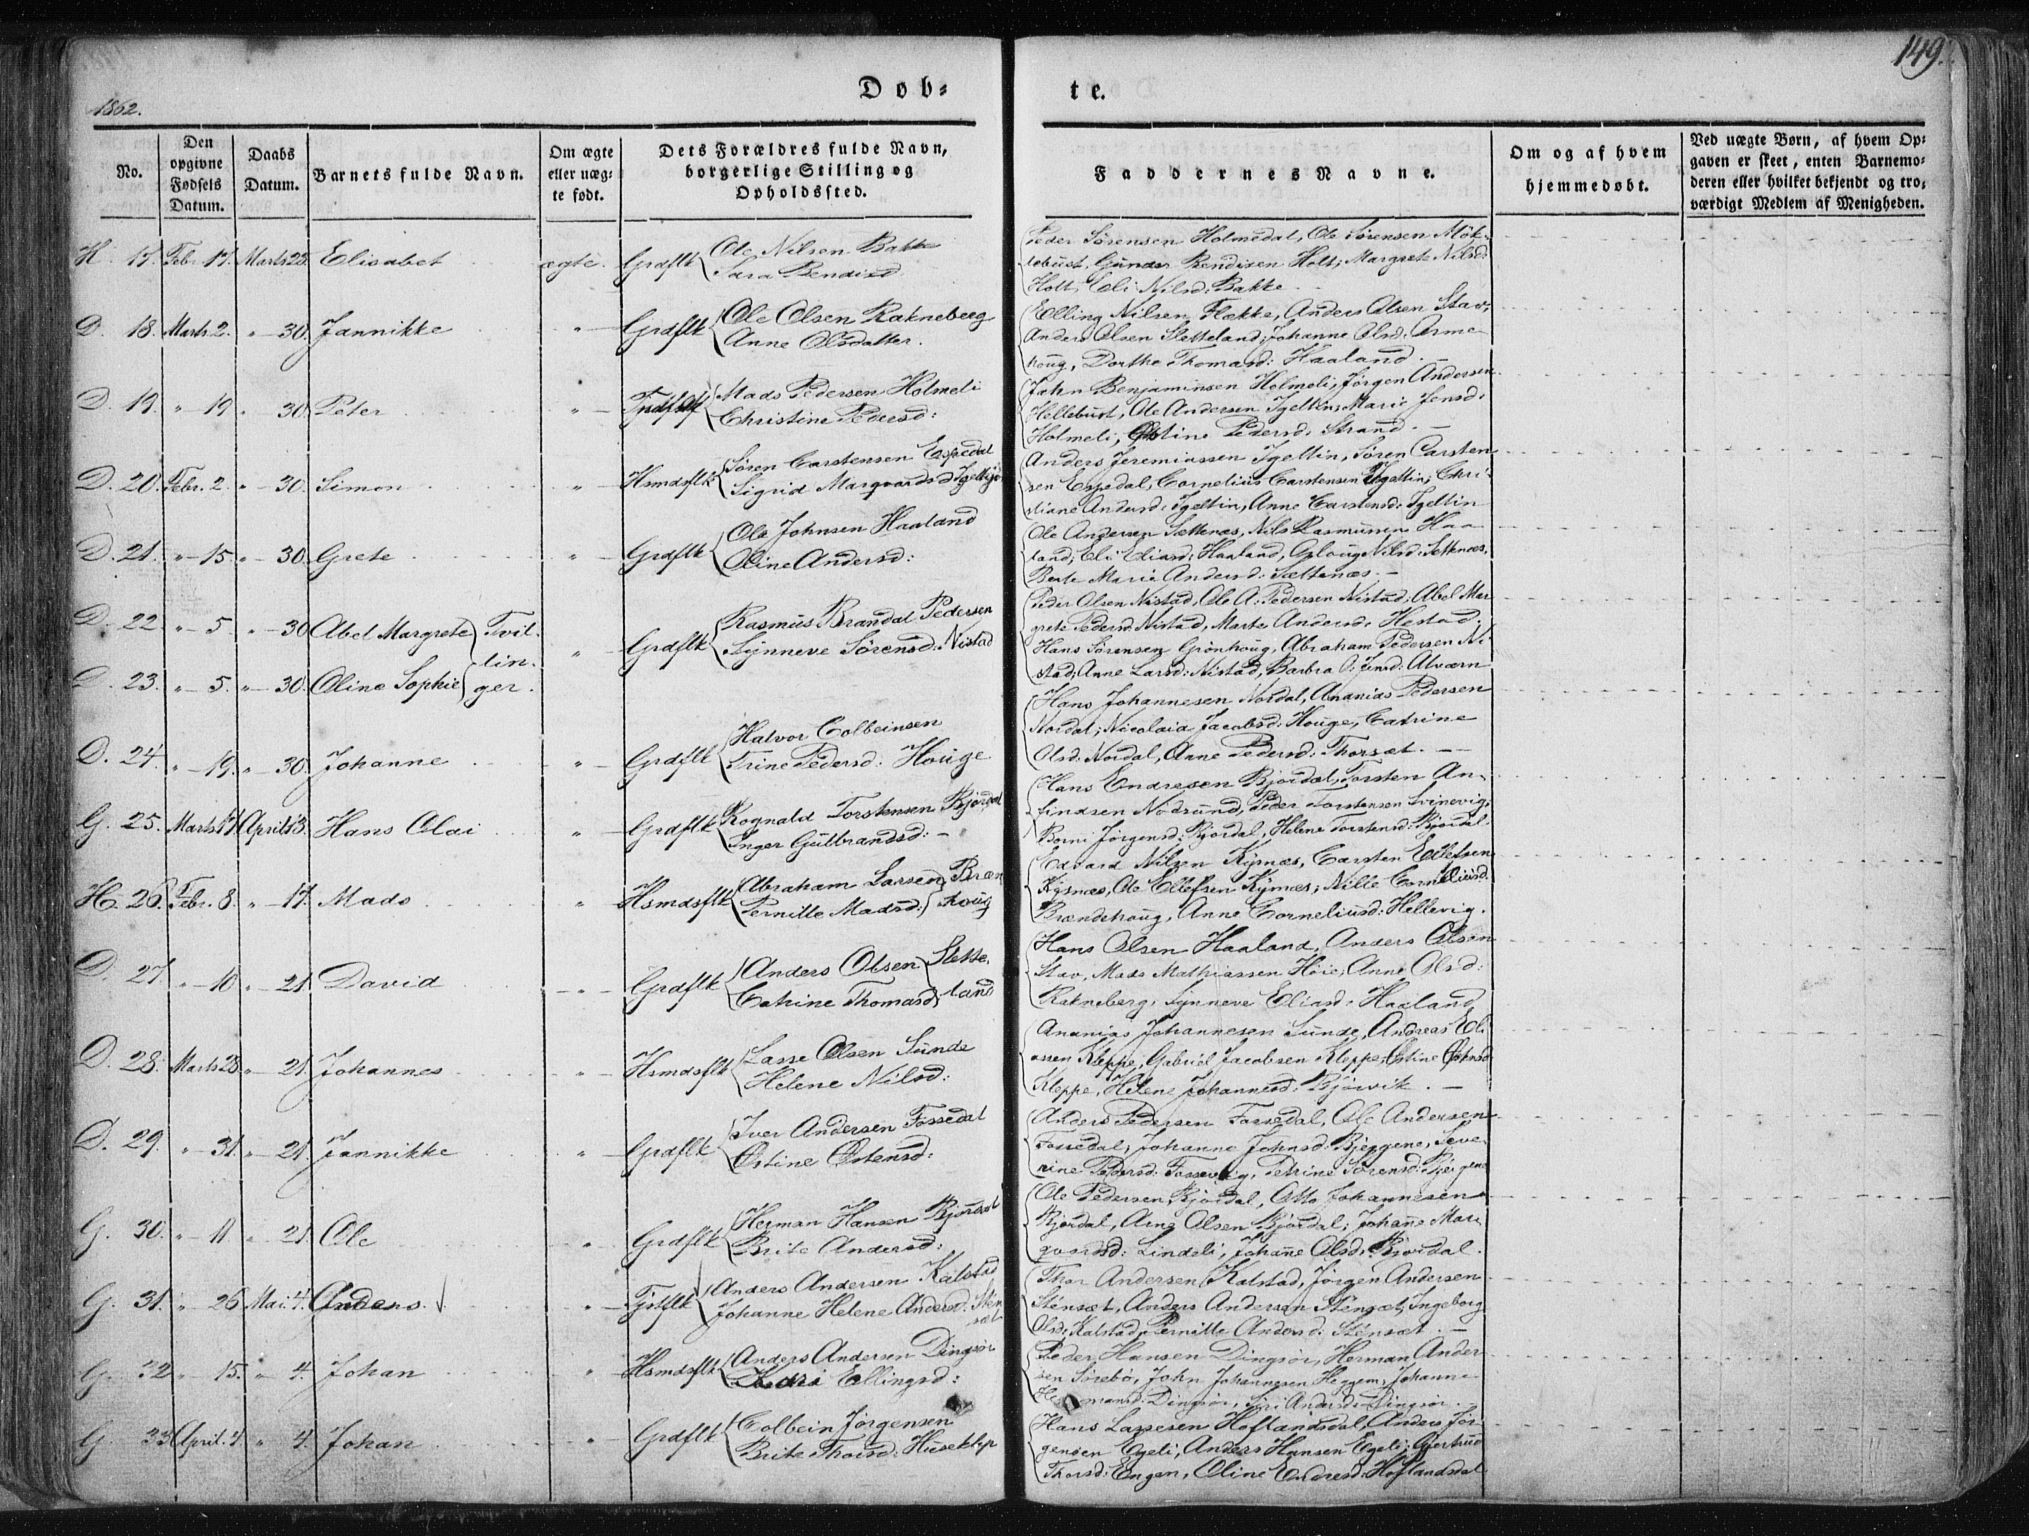 149.
1862.
Døb-
te.
No.
Den opgivne Fødsels Datum.
Daabs Datum.
Barnets fulde Navn.
Om ægte eller uægte født.
Dets Forældres fulde Navn, borgerlige Stilling og Opholdssted.
Faddernes Navne.
Om og af hvem hjemmedøbt.
Ved uægte Børn, af hvem Opgaven er skeet, enten Barnemoderen eller hvilket bekjendt og troværdigt Medlem af Menigheden.
H. 17. Feb. 17. Marts 23. Elisabet ægte. Grdflk Ole Nilsen Bakke
Sara Bendisd
Peder Sørensen Holmedal, Ole Sørensen Møk-
lebust, Gunder Bendisen Holt; Margrete Nilsd:
Holt, Eli Nilsd: Bakke
D. 18. Marts 2. " 30. Jannikke " Grdflk Ole Olsen Rakneberg
Anne Olsdatter.
Elling Nilsen Flekke, Anders Olsen Stav,
Anders Olsen Sletteland; Johanne Olsd:
houg, Dorthe Thomasd: Haaland.
D. 19. " 19. " 30. Peter " Mads Pedersen Holmeli
Christine Pedersd:
John Benjaminsen Holmeli, Jørgen Andersen
Hellebust, Ole Andersen Igeltin; Marie Jensd:
Holmeli, Pedersd: Strand.
D. 20. Febr. 2. " 30. Simon " Hsmdsflk Søren Carstensen Espedal
Sigrid Margvardsd
Anders Jeremiassen Igeltin, Søren Carsten-
sen Espedal, Cornelius Carstensen Igeltin; Chri-
stiane Andersd: Igeltin, Anne Carstensd: Igeltin
D. 21. " 15. " 30. Grete " Grdflk Ole Johnsen Haaland
Oline Andersd:
Ole Andersen Sættenæs, Nils Rasmussen Haa-
land; Eli Eliasd: Haaland, Nilsd: Settenæs,
Berte Marie Andersd: Sættenæs.
D. 22. " 5. " 30. Abel Margrete Tvil-
lin-
D. 23. " 5. " 30. Oline Sophie ger.
" Grdflk Rasmus Brandal Pedersen
Synneve Sørensd: Nistad
Peder Olsen Nistad, Ole A: Pedersen Nistad; Abel Mar-
grete Pedersd Nistad, Marte Andersd: Hestad.
Hans Sørensen Grønhoug, Abraham Pedersen Ni-
stad; Anne Larsd: Nistad, Barbra Jensd: Alværn
D. 24. " 19. " 30. Johanne " Grdflk Halvor Colbeinsen
Trine Pedersd: Houge
Hans Johannesen Nordal, Ananias Pedersen
Nordal; Nicolaia Jacobsd: Houge, Catrine
Olsd: Nordal, Anne Pedersd: Thorsæt.
G. 25. Marts 17. April 13. Hans Olai " Grdflk Rognald Torstensen Bjørdal
Inger Gulbrandsd:
Hans Endresen Bjørdal, Torsten An-
findsen Nødsund, Peder Torstensen Svinevig,
Borni Jørgensd: Bjørdal, Helene Torstensd: Bjørdal.
H. 26. Febr. 8. " 17. Mads " Hsmdsflk Abraham Larsen Bræn
Pernille Madsd: houg
Edvard Nilsen Kysnæs, Carsten Ellefsen
Kysnæs, Ole Ellefsen Kysnæs; Nille Corneliusd:
Brændehoug, Anne Corneliusd: Hellevig.
D. 27. " 10. " 21. David " Grdflk Anders Olsen Slette-
Catrine Thomasd: land
Hans Olsen Haaland, Anders Olsen
Stav, Mads Mathiassen Høie; Anne Olsd:
Rakneberg, Synneve Eliasd: Haaland
D. 28. Marts 28. " 21. Johannes " Hsmdsflk Lasse Olsen Sunde
Helene Nilsd:
Ananias Johannesen Sunde, Andreas Eli-
assen Kleppe, Gabriel Jacobsen Kleppe; Østine
Kleppe, Helene Johannesd: Bjørvik.
D. 29. " 31. " 21. Jannikke " Grdflk Iver Andersen Fossedal
Østine Østensd:
Anders Pedersen Fossedal, Ole Andersen
Fossedal; Johanne Johnsd: Bjeggene, Seve-
rine Pedersd: Fossevig, Petrine Sørensd:
G. 30. " 11 " 21. Ole " Grdflk Herman Hansen Bjørdal
Brite Andersd:
Ole Pedersen Bjørdal, Otto Johannesen
Bjørdal, Arne Olsen Bjørdal; Johanne Mar-
qvardsd: Lindeli, Johanne Olsd: Bjørdal.
G. 31. " 26 Mai 4. Anders. " Tjstflk Anders Andersen Kalstad
Johanne Helene Andersd: Stén-
sæt
Thor Andersen Kalstad, Jørgen Andersen
Sténsæt, Anders Andersen Sténsæt; Ingeborg
Olsd: Kalstad, Pernille Andersd: Sténsæt.
G. 32 " 15. " 4. Johan " Hsmdsflk Anders Andersen Dingsør
Kari Ellingsd:
Peder Hansen Dingsør, Herman Ander-
sen Sørebø, John Johannesen Heggem; Johanne
Hermansd: Dingsør, Siri Andersd: Dingsør.
G. 33 April. 4. " 4. Johan " Grdflk Colbein Jørgensen
Brite Thorsd:
Hans Lassesen Hoflandsdal, Anders Jør-
gensen Egeli, Anders Hansen Egeli; Gjertrud
Thorsd: Engen, Oline Endresd: Hoflandsdal